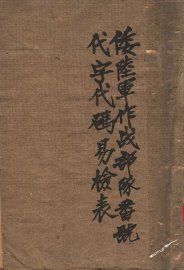 倭陸軍作战部隊番號
代字代碼易檢表